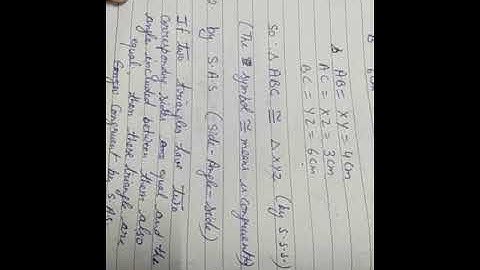 B 6cm
Δ AB = XY = 4cm
AC = XZ = 3cm
BC = YZ = 6cm
So Δ ABC ≅ Δ XYZ (by S.S.S.)
(The symbol ≅ means is congruent)
2 by S.A.S (Side-Angle-Side)
If two triangles have two
corresponding sides are equal and the
angle included between them also
equal, then these triangle are
Congruent by S.A.S.